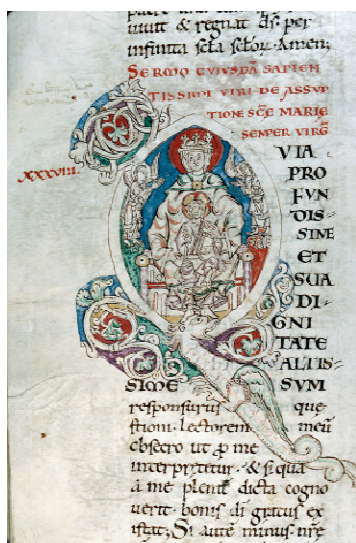 uiuit & regnat ds per
infinita scła scłoꝝ. Amen;
SERMO CVIVSDĀ SAPIEN
TISSIMI VIRI DE ASSVP
TIONE SC̄E MARIE
SEMPER VIRḠ
XXXVIII.
VIA
PRO
FVN
DIS-
SIME
ET
SVA
DI-
GNI
TATE
ALTIS-
SIME SVM
responsurus que
stioni. lectorem meū
obsecro ut ꝓ me
interpretetur. & si qua
a me pleniť dicta cogno
uerit. bonis di gratus ex
istat; Si autē minus. nre